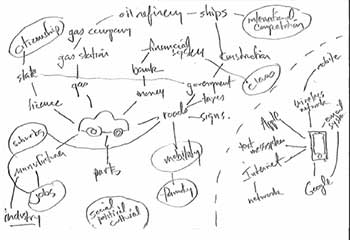 oil refinery
ships
international
corporation
citizenship
gas company
gas station
financial
system
construction
mobile
state
bank
government
class
wireless
network
gas
licence
money
taxes
roads
signs.
Apple
social
system
suburbs
manufacturer
text
messages
Internet
parts
mobility
jobs
family
networks
Google
industry
social
political
cultural